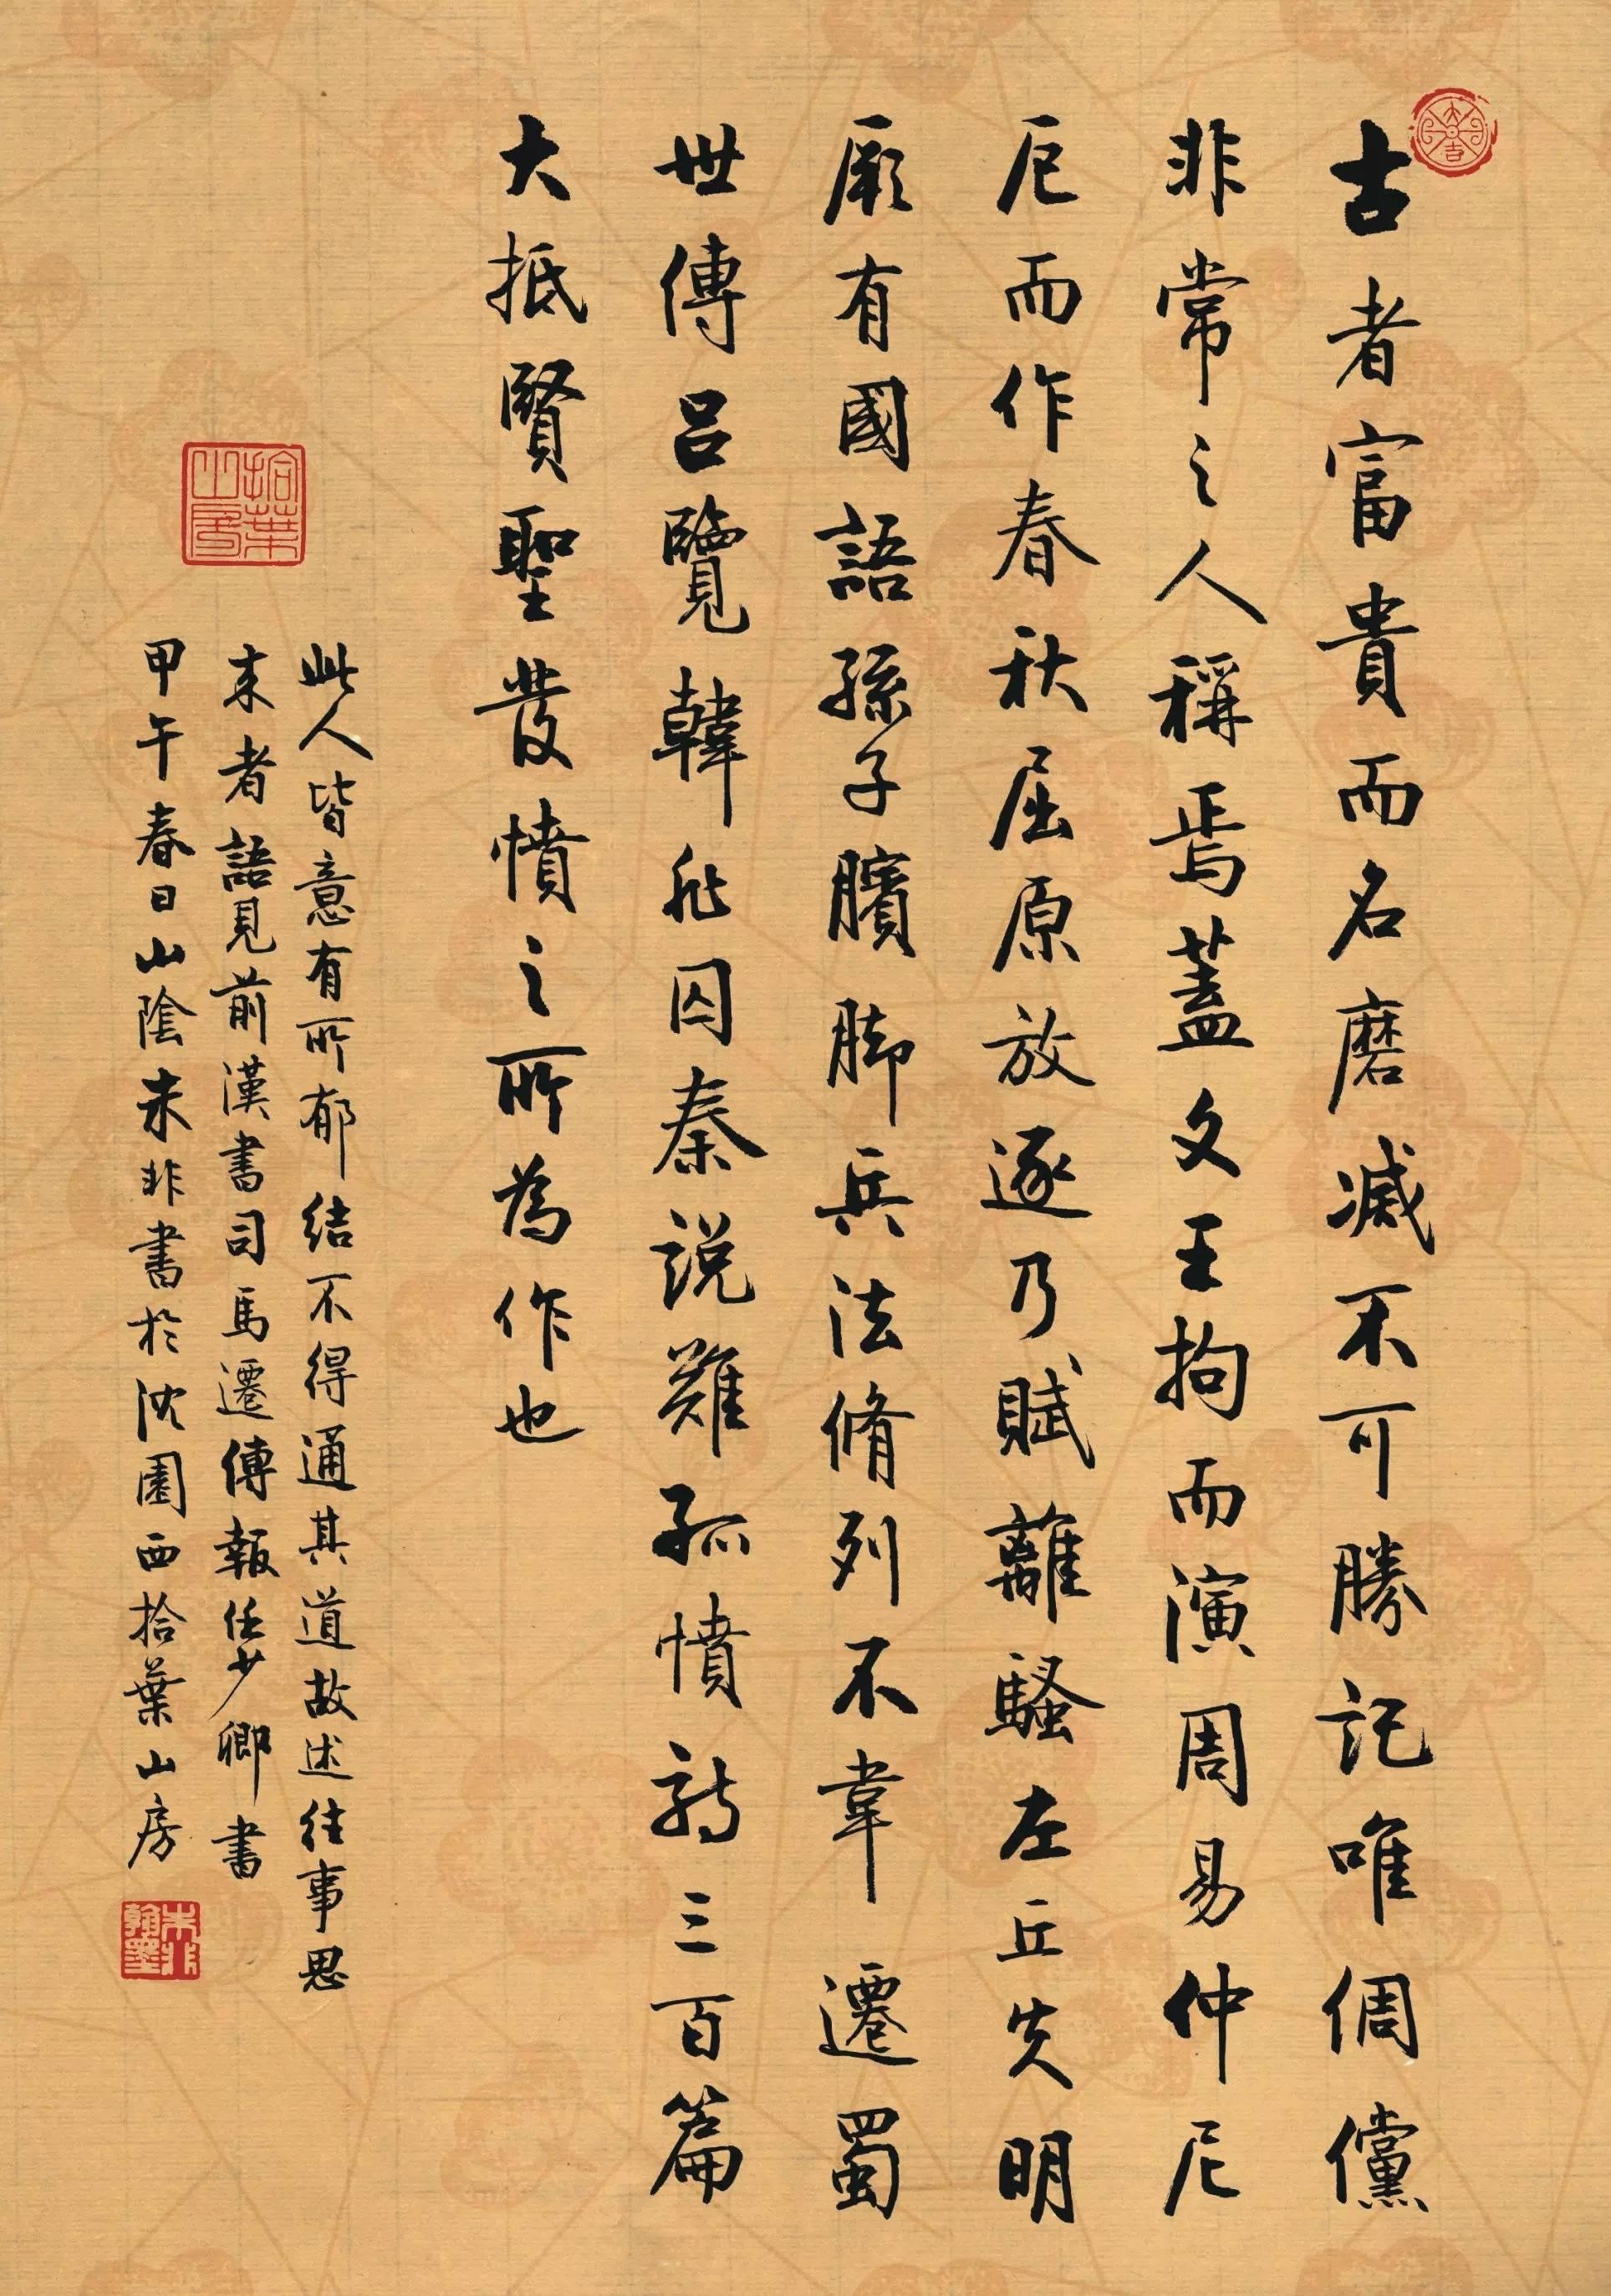 古者富貴而名磨滅不可勝記唯倜儻
非常之人稱焉蓋文王拘而演周易仲尼
厄而作春秋屈原放逐乃賦離騷左丘失明
厥有國語孫子臏脚兵法脩列不韋遷蜀
世傳呂覽韓非囚秦說難孤憤詩三百篇
大抵賢聖發憤之所為作也
此人皆意有所郁結不得通其道故述往事思
来者語見前漢書司馬遷傳報任少卿書
甲午春日山陰朱非書於沈園西拾葉山房
大吉
拾葉山房
朱非翰墨